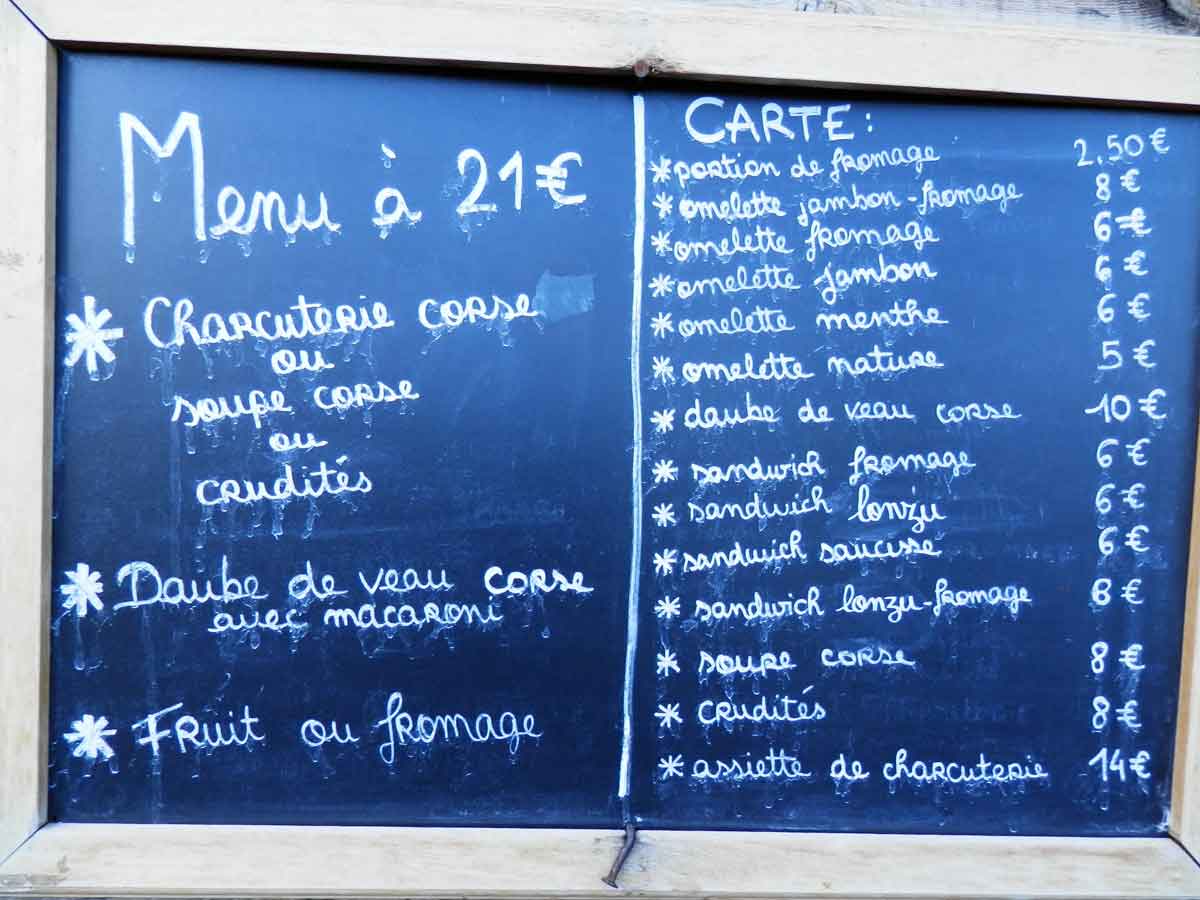 Menu à 21€
* Charcuterie corse
ou
soupe corse
ou
crudités
* Daube de veau corse
avec macaroni
* Fruit ou fromage
CARTE :
* portion de fromage 2.50 €
* omelette jambon-fromage 8 €
* omelette fromage 6 €
* omelette jambon 6 €
* omelette menthe 6 €
* omelette nature 5 €
* daube de veau corse 10 €
* sandwich fromage 6 €
* sandwich lonzu 6 €
* sandwich saucisse 6 €
* sandwich lonzu-fromage 8 €
* soupe corse 8 €
* crudités 8 €
* assiette de charcuterie 14 €